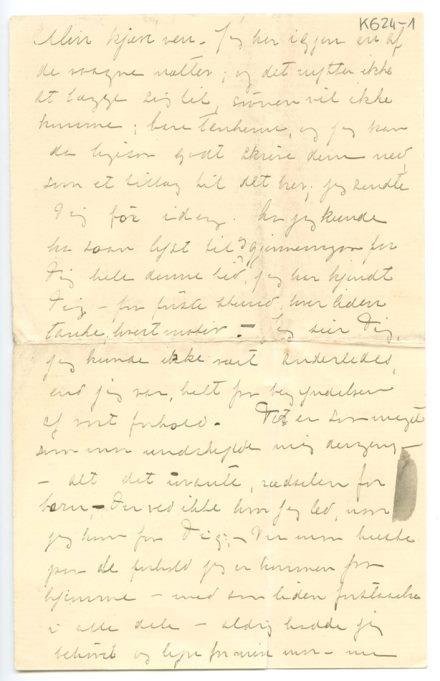 K624-1
Min kjære ven. Jeg har igjen en af
de vaagne nætter, og det nytter ikke
at lægge sig til, søvnen vil ikke
komme; bare tankerne, og jeg kan
da ligesaa godt skrive dem ned,
som et tillæg til det brev, jeg sendte
Dig før idag. Aa jeg kunde
ha saan lyst til at gjennemgaa for
Dig hele denne tid, jeg har kjendt
Dig – fra første stund, hver liden
tanke, hvert motiv. – Jeg sier Dig,
jeg kunde ikke vært anderledes,
end jeg var, helt fra begyndelsen
af vort forhold. Det er saa meget
som man undskylde mig dengang –
– alt det uvante, rædselen for
børn, – Du ved ikke hva jeg led, naar
jeg kom fra Dig, – Du maa huske
paa de forhold jeg er kommen fra
hjemme – med saa liden forstaaelse
i alle dele – aldrig hadde jeg
behøvet og lyve for min mor –